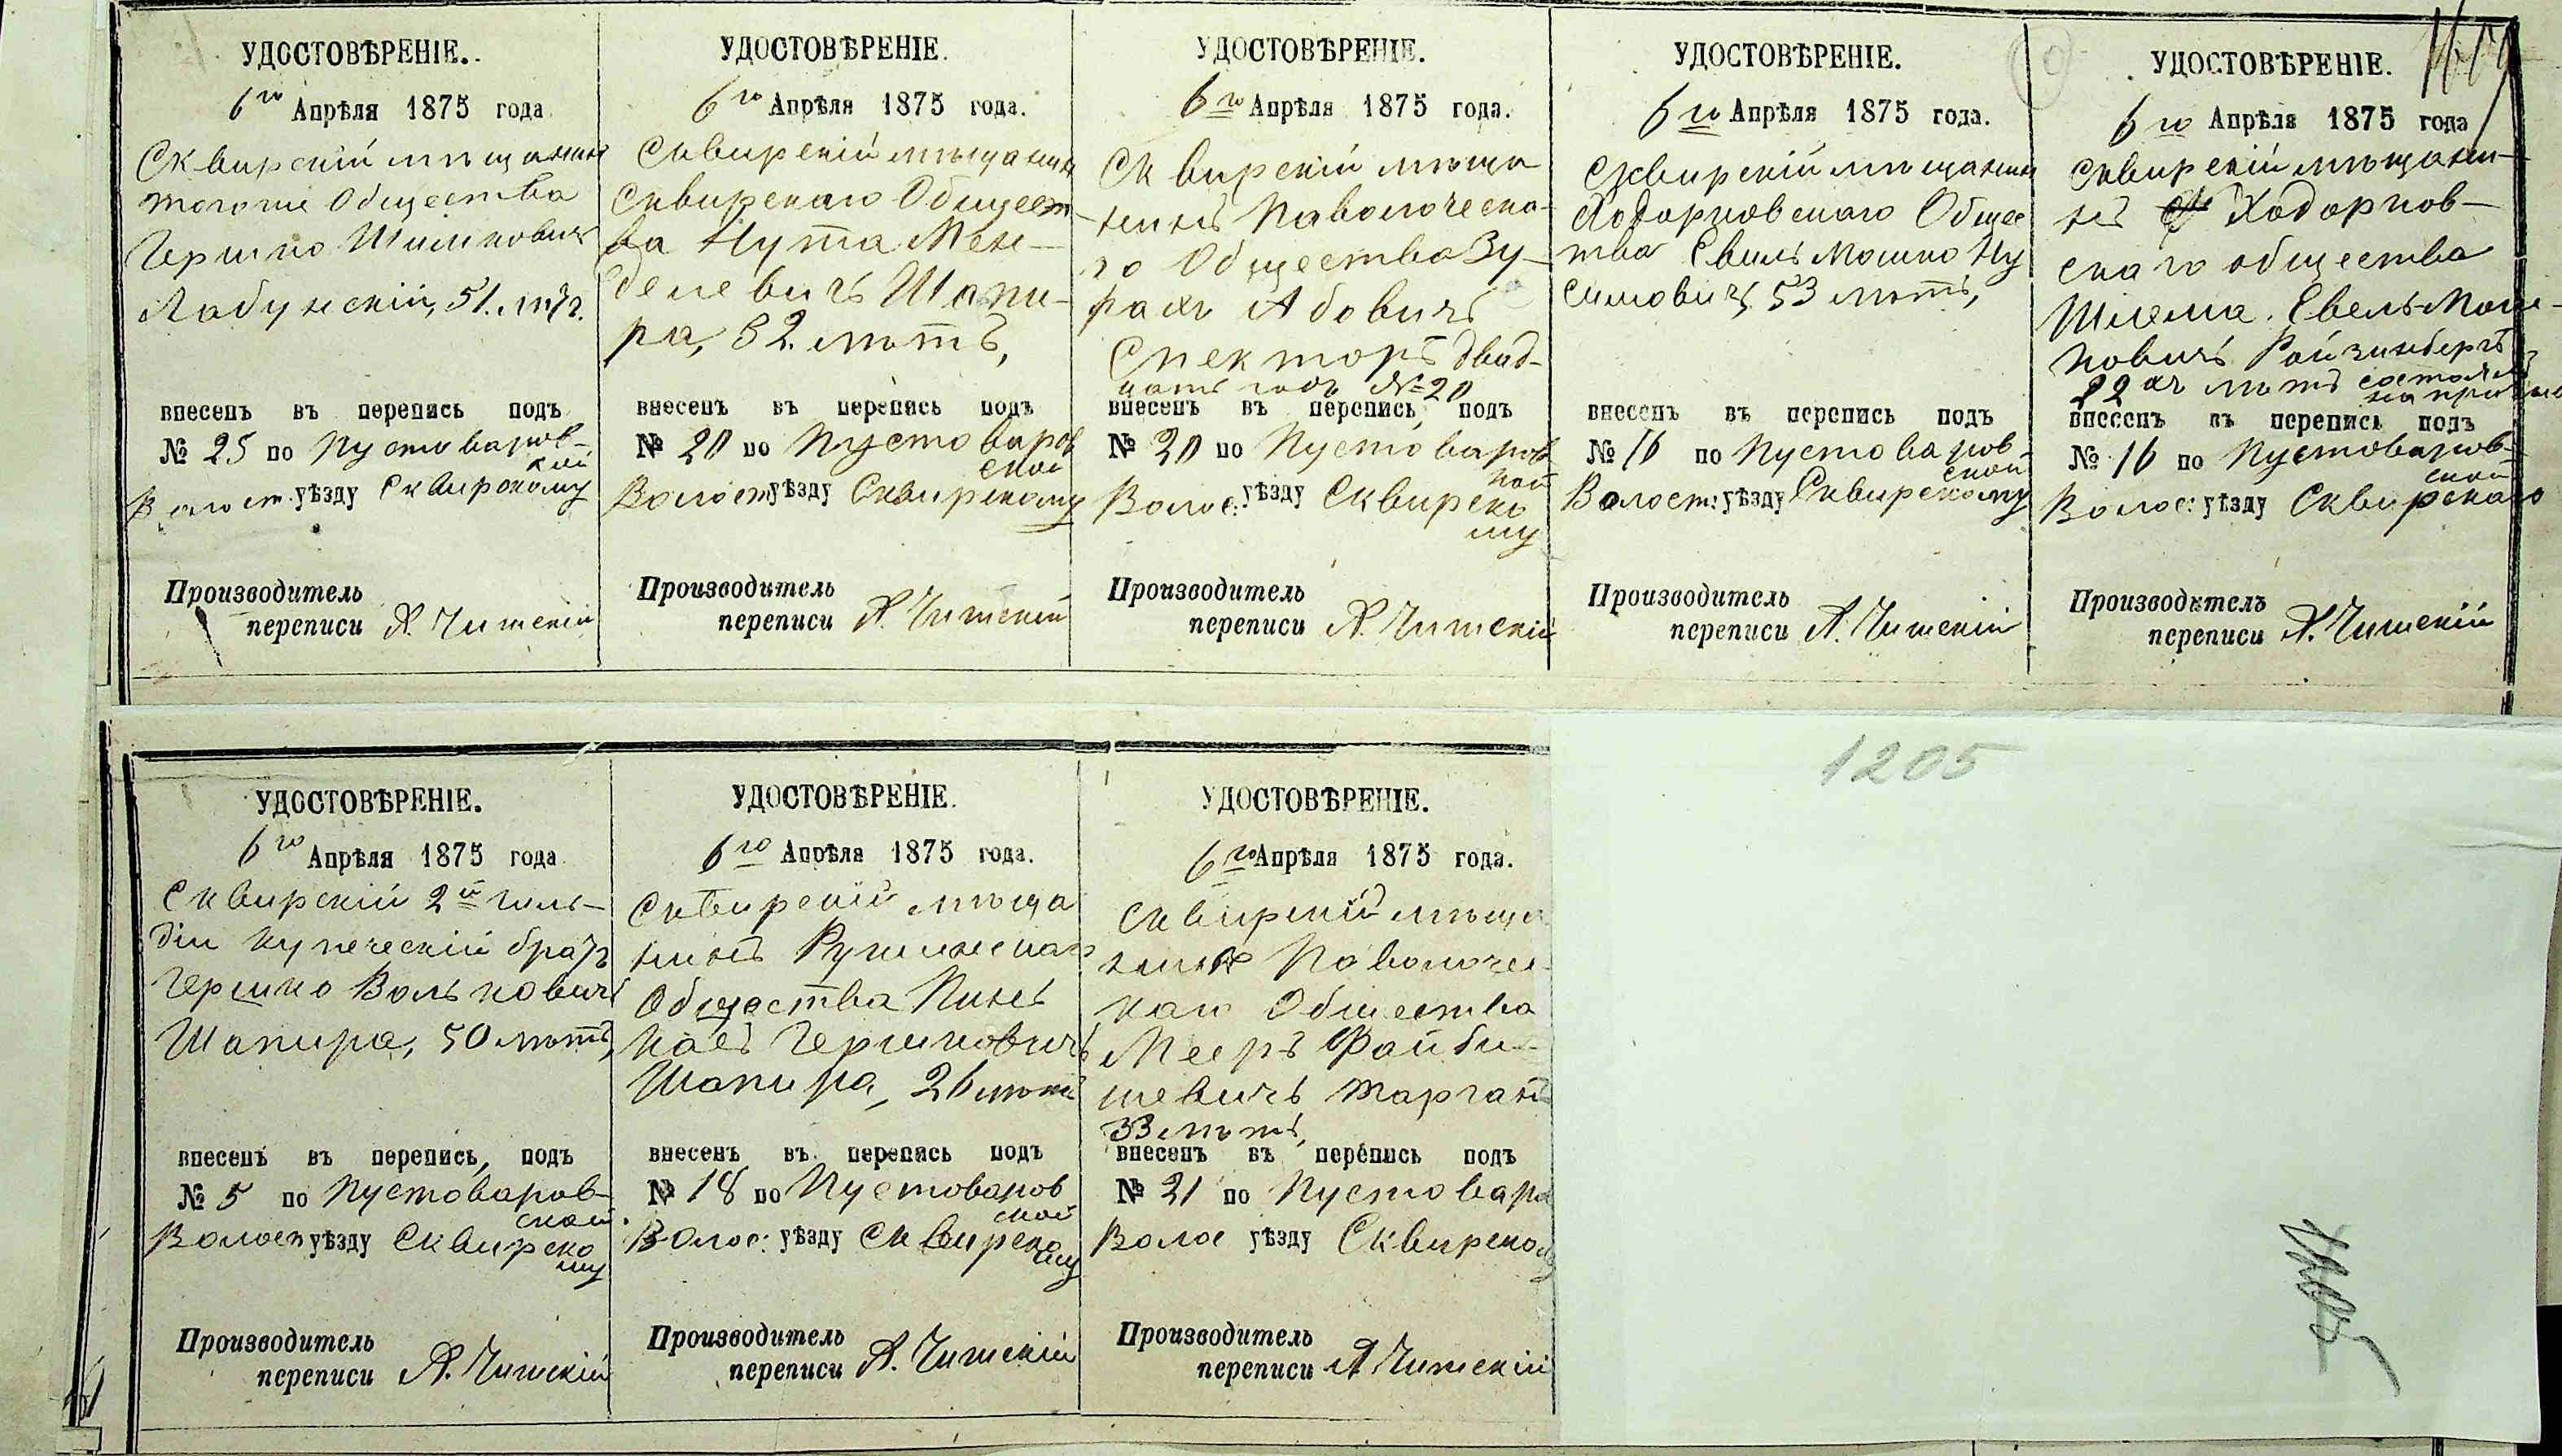 УДОСТОВѢРЕНІЕ.
6го Апрѣля 1875 года.
Сквирскій мѣщанинъ
тогоже Общества
Гершко Шимковичъ
Лабунскій, 51. лѣтъ.
внесенъ въ перепись подъ
№ 25 по Пустоваров-
ской
Волост. уѣзду Сквирскому
Производитель
переписи
УДОСТОВѢРЕНІЕ.
6го Апрѣля 1875 года.
Сквирскій мѣщанинъ
Сквирскаго Общест-
ва Нута Мен-
делевичъ Шапи-
ра, 32. лѣтъ,
внесенъ въ перепись подъ
№ 20 по Пустоваров
ской
Волост уѣзду Сквирскому
Производитель
переписи
УДОСТОВѢРЕНІЕ.
6го Апрѣля 1875 года.
Сквирскій мѣща
нинъ Паволочска-
го Общества Зу-
рахъ Абовичъ
Спекторъ двад-
цать № 20
внесенъ въ перепись подъ
№ 20 по Пустоваров
кой
Волос: уѣзду Сквирско
му
Производитель
переписи
УДОСТОВѢРЕНІЕ.
6го Апрѣля 1875 года.
Сквирскій мѣщанинъ
Ходорковскаго Общес
тва Евель Мошко Ну
симовичъ, 53 лѣтъ,
внесенъ въ перепись подъ
№ 16 по Пустоваров
ской
Волост: уѣзду Сквирскому
Производитель
переписи
УДОСТОВѢРЕНІЕ.
6го Апрѣля 1875 года
Сквирскій мѣщани-
нъ Ходорков-
скаго общества
Шлема Евель-Мош-
ковичъ Ройзинбергъ
22хъ лѣтъ
внесенъ въ перепись подъ
№ 16 по Пустоваров-
ской
Волос: уѣзду Сквирскаго
Производитель
переписи
УДОСТОВѢРЕНІЕ.
6го Апрѣля 1875 года
Сквирскій 2й гиль-
діи купеческій братъ
Гершко Вольковичъ
Шапира, 50 лѣтъ,
внесенъ въ перепись, подъ
№ 5 по Пустоваров-
ской
Волост уѣзду Сквирско
му
Производитель
переписи
УДОСТОВѢРЕНІЕ.
6го Апрѣля 1875 года.
Сквирскій мѣща
нинъ Ружинскаго
Общества Пинь
касъ Гершковичъ
Шапира, 26 лѣтъ
внесенъ въ перепись подъ
№ 18 по Пустоваров
ской
Волос: уѣзду Сквирско
му
Производитель
переписи
УДОСТОВѢРЕНІЕ.
6го Апрѣля 1875 года.
Сквирскій мѣща
нинъ Паволочс-
каго Общества
Мееръ Файби-
шевичъ Тарган
33 лѣтъ,
внесенъ въ перепись подъ
№ 21 по Пустовар
Волос уѣзду Сквирском
Производитель
переписи
1205